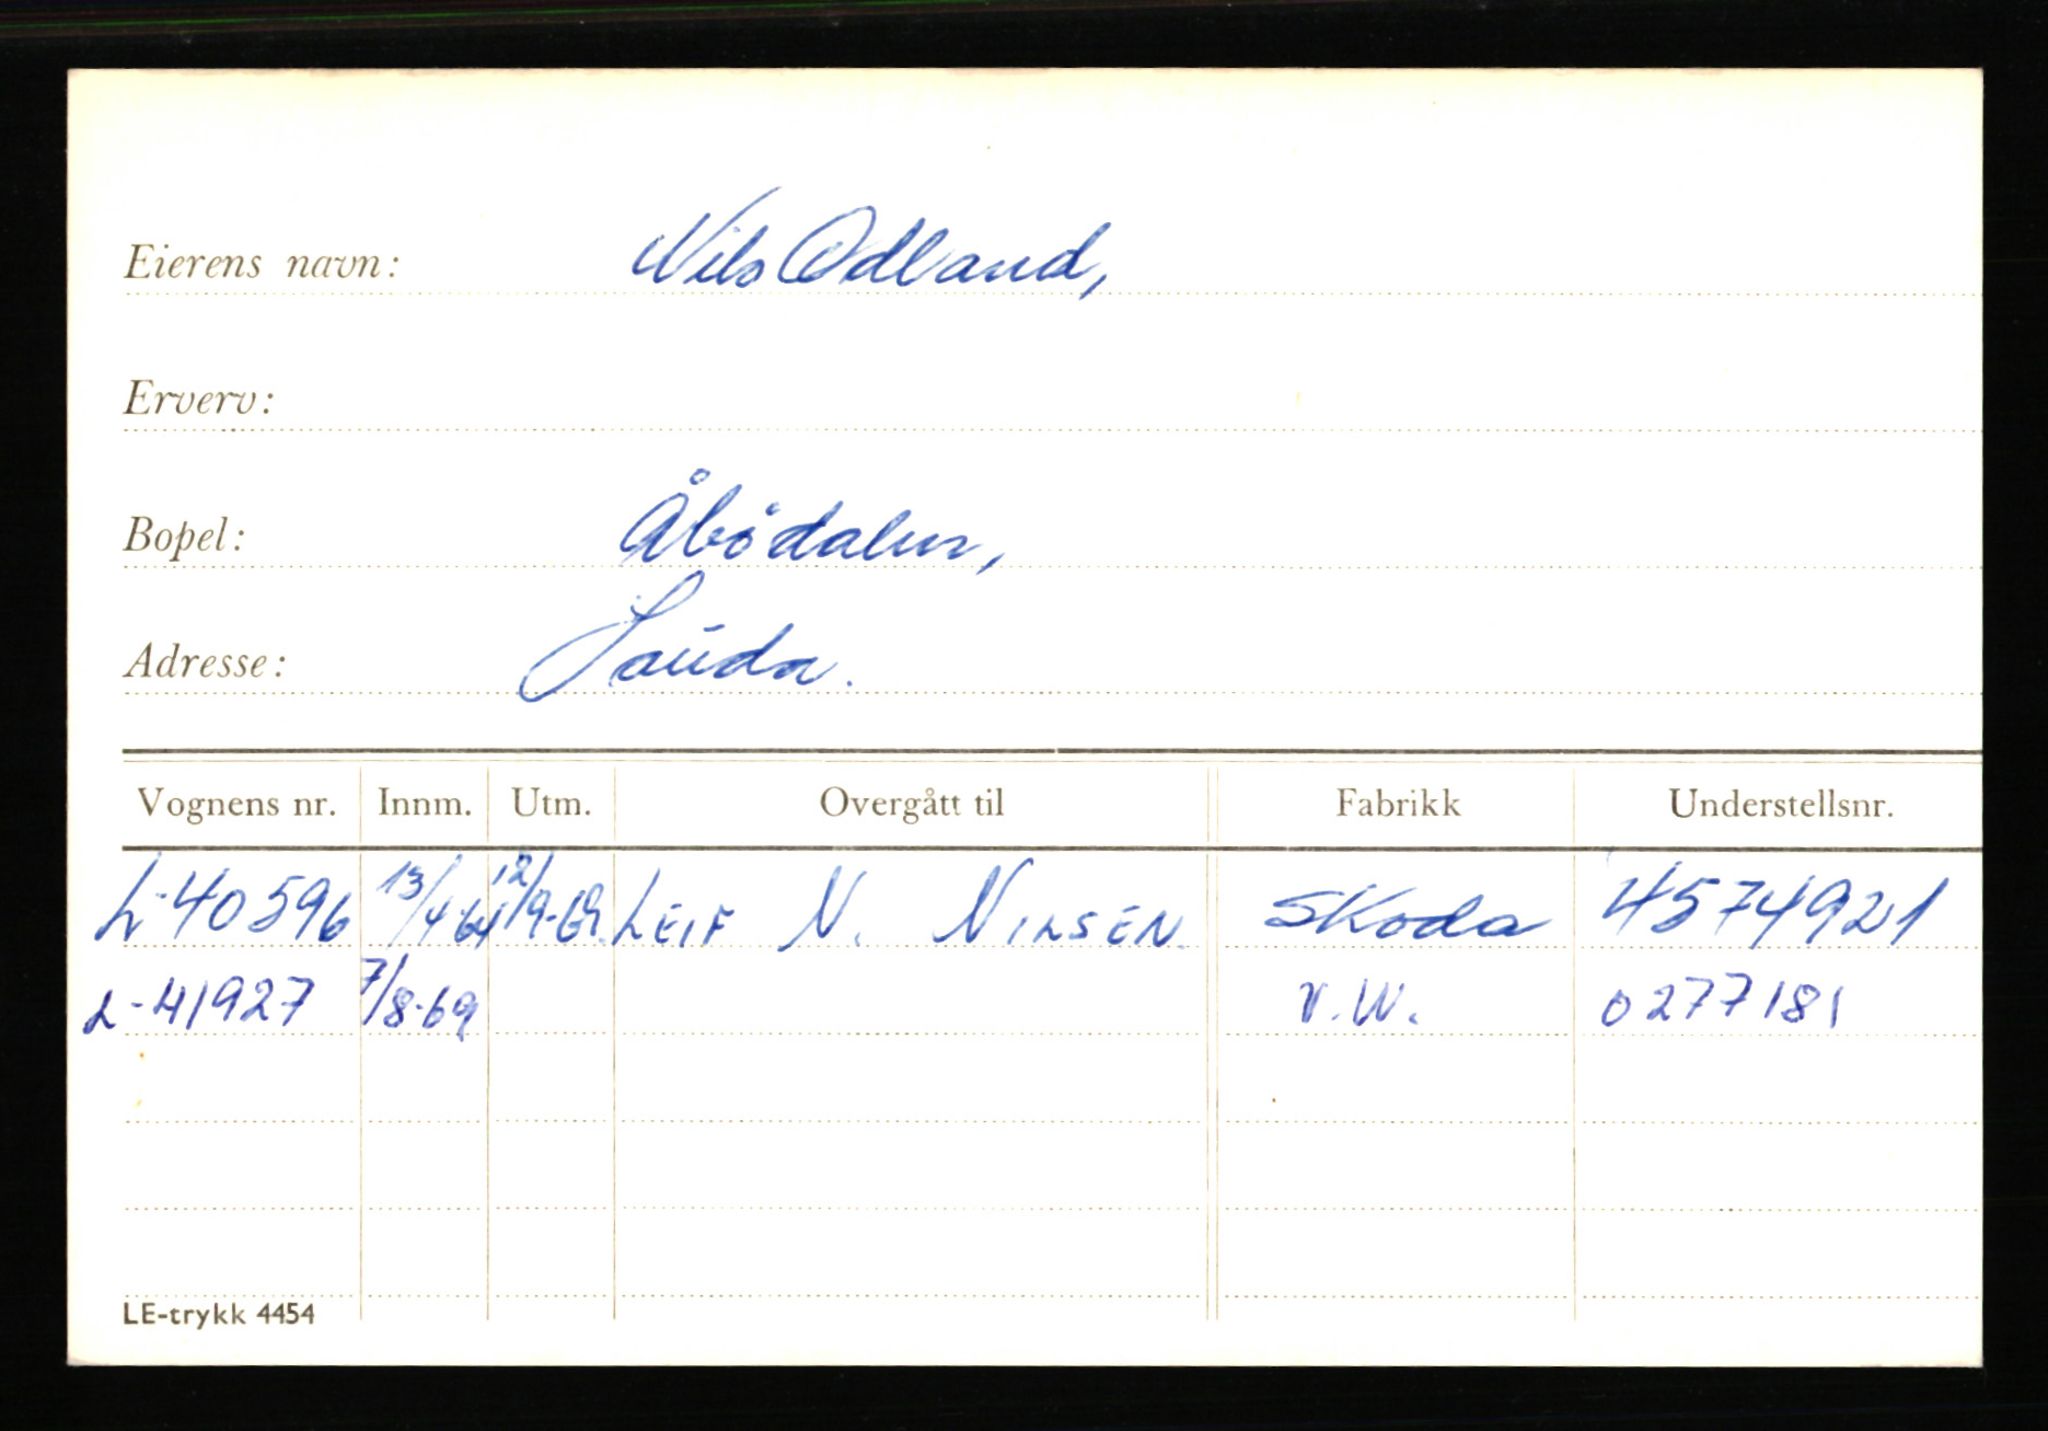 Eierens navn: Nils Odland,
Erverv:
Bopel: Åbödalen,
Adresse: Sauda.
Vognens nr. Innm. Utm. Overgått til Fabrikk Understellsnr.
L-40596 13/4-64 12/9-69. LEIF N. NILSEN. Skoda 4574921
L-41927 7/8-69 V.W. 0277181
LE-trykk 4454